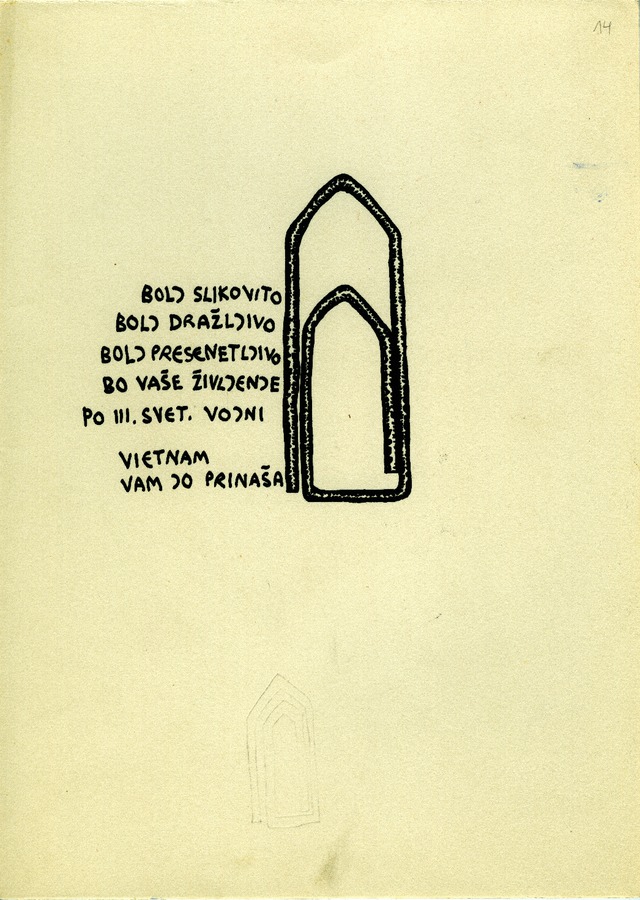 14
BOLJ SLIKOVITO
BOLJ DRAŽLJIVO
BOLJ PRESENETLJIVO
BO VAŠE ŽIVLJENJE
PO III. SVET. VOJNI
VIETNAM
VAM JO PRINAŠA